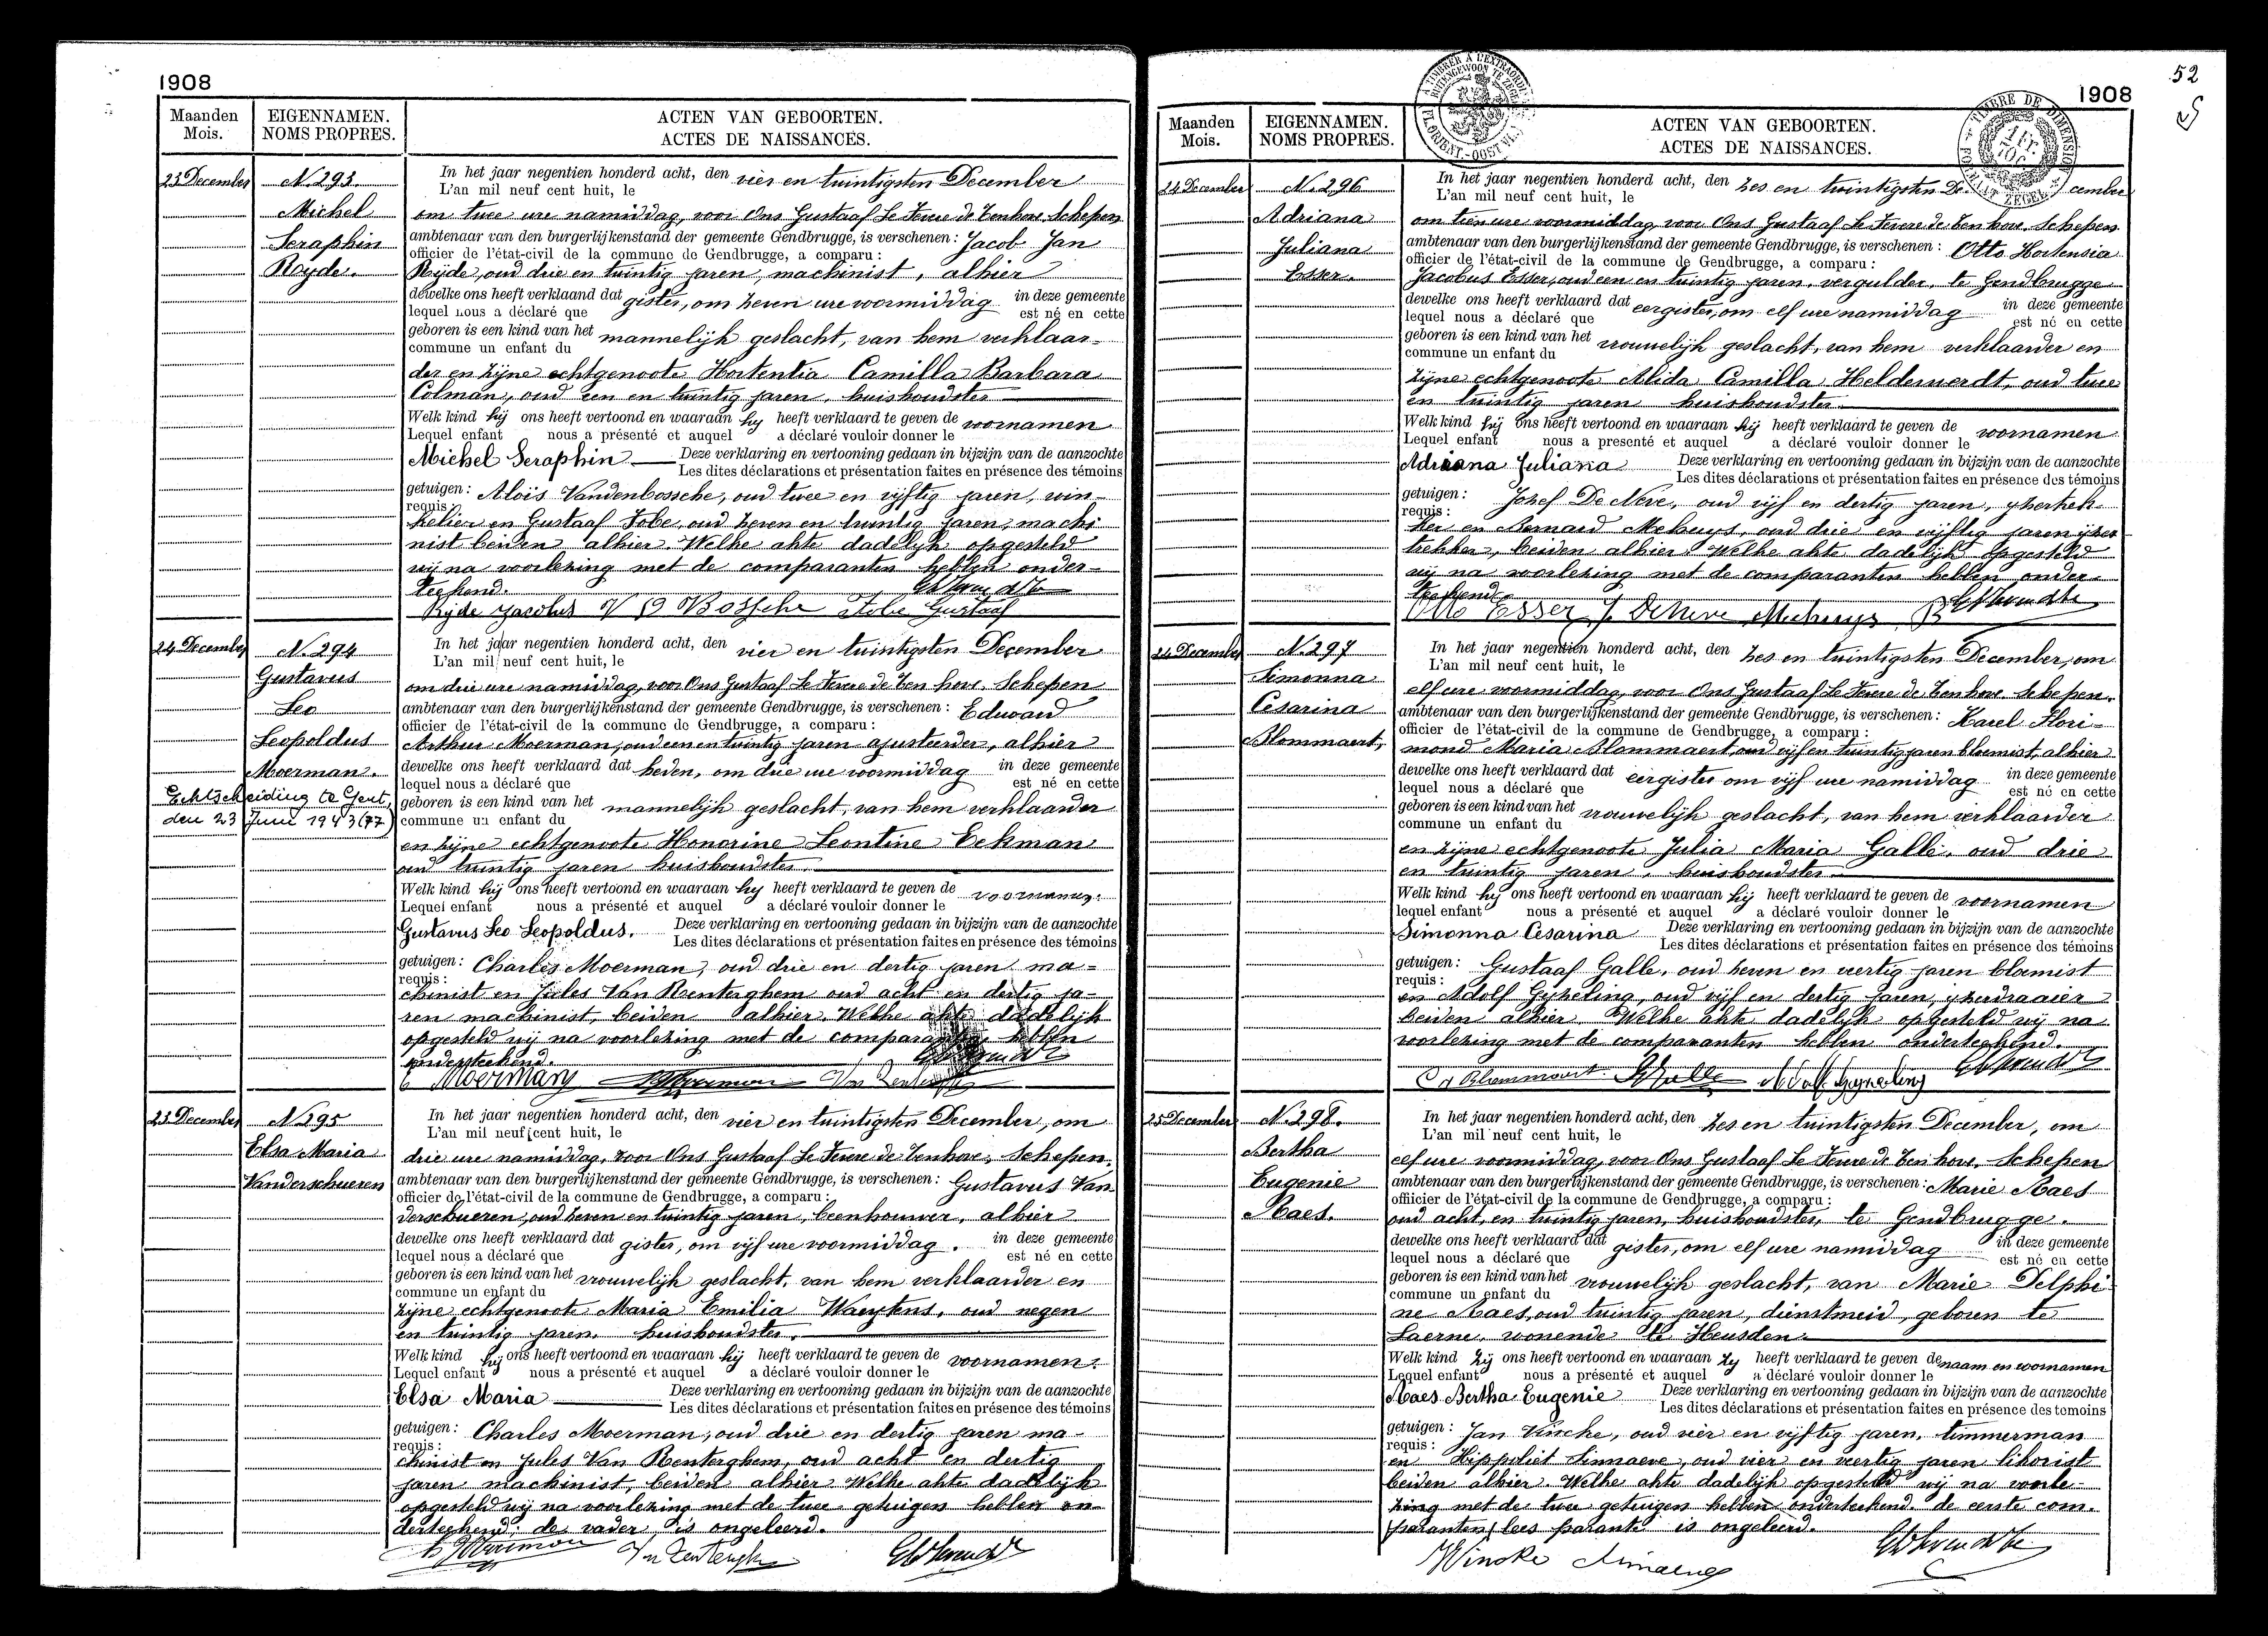 1908
Maanden EIGENNAMEN. ACTEN VAN GEBOORTEN.
Mois. NOMS PROPRES. ACTES DE NAISSANCES.
23 December N. 293. In het jaar negentien honderd acht, den vier en twintigsten December
L'an mil neuf cent huit, le
Michel om twee ure namiddag, voor Ons Gustaaf Le Fevere de Tenhove, Schepen
Seraphin ambtenaar van den burgerlijkenstand der gemeente Gendbrugge, is verschenen: Jacob Jan
officier de l'état-civil de la commune de Gendbrugge, a comparu:
Ryde. Ryde, oud drie en twintig jaren, machinist, alhier
dewelke ons heeft verklaand dat gister, om zeven ure voormiddag in deze gemeente
lequel nous a déclaré que est né en cette
geboren is een kind van het mannelijk geslacht, van hem verklaar-
commune un enfant du
der en zijne echtgenoote Hortentia Camilla Barbara
Colman, oud een en twintig jaren, huishoudster
Welk kind hij ons heeft vertoond en waaraan hy heeft verklaard te geven de voornamen
Lequel enfant nous a présenté et auquel a déclaré vouloir donner le
Michel Seraphin Deze verklaring en vertooning gedaan in bijzijn van de aanzochte
Les dites déclarations et présentation faites en présence des témoins
getuigen: Aloïs Vandenbossche, oud twee en vijftig jaren, win-
requis:
kelier en Gustaaf Fobe, oud zeven en twintig jaren, machi
nist beiden alhier. Welke akte dadelijk opgesteld
wij na voorlezing met de comparanten hebben onder-
teekend.
Ryde Jacobus V D Bossche Fobe Gustaaf
24 December N. 294 In het jaar negentien honderd acht, den vier en twintigsten December
L'an mil neuf cent huit, le
Gustavus om drie ure namiddag, voor Ons Gustaaf Le Fevere de Ten hove, Schepen
Leo ambtenaar van den burgerlijkenstand der gemeente Gendbrugge, is verschenen: Edward
officier de l'état-civil de la commune de Gendbrugge, a comparu:
Leopoldus Arthur Moerman, oud een en twintig jaren ajusteerder, alhier
Moerman. dewelke ons heeft verklaard dat heden, om drie ure voormiddag in deze gemeente
lequel nous a déclaré que est né en cette
Echtscheiding te Gent,
den 23 Juni 1943 (77)
geboren is een kind van het mannelijk geslacht, van hem verklaarder
commune un enfant du
en zijne echtgenoote Honorine Leontine Eekman
oud twintig jaren huishoudster.
Welk kind hij ons heeft vertoond en waaraan hy heeft verklaard te geven de voornamen.
Lequel enfant nous a présenté et auquel a déclaré vouloir donner le
Gustavus Leo Leopoldus. Deze verklaring en vertooning gedaan in bijzijn van de aanzochte
Les dites déclarations et présentation faites en présence des témoins
getuigen: Charles Moerman, oud drie en dertig jaren ma-
requis:
chinist en Jules Van Renterghem oud acht en dertig ja-
ren machinist, beiden alhier. Welke akte dadelijk
opgesteld wij na voorlezing met de comparanten hebben
onderteekend.
E Moerman
23 December N. 295 In het jaar negentien honderd acht, den vier en twintigsten December, om
L'an mil neuf cent huit, le
Elsa Maria drie ure namiddag, voor Ons Gustaaf Le Fevere de Tenhove, Schepen,
Vanderschueren ambtenaar van den burgerlijkenstand der gemeente Gendbrugge, is verschenen: Gustavus Van-
officier de l'état-civil de la commune de Gendbrugge, a comparu:
derschueren, oud zeven en twintig jaren, beenhouwer, alhier
dewelke ons heeft verklaard dat gister, om vijf ure voormiddag. in deze gemeente
lequel nous a déclaré que est né en cette
geboren is een kind van het vrouwelijk geslacht, van hem verklaarder en
commune un enfant du
zijne echtgenoote Maria Emilia Waeytens, oud negen
en twintig jaren, huishoudster.
Welk kind hij ons heeft vertoond en waaraan hij heeft verklaard te geven de voornamen.
Lequel enfant nous a présenté et auquel a déclaré vouloir donner le
Elsa Maria Deze verklaring en vertooning gedaan in bijzijn van de aanzochte
Les dites déclarations et présentation faites en présence des témoins
getuigen: Charles Moerman, oud drie en dertig jaren ma-
requis:
chinist en Jules Van Renterghem, oud acht en dertig
jaren machinist, beiden alhier Welke akte dadelijk
opgesteld wij na voorlezing met de twee getuigen hebben on-
derteekend; de vader is ongeleerd.
52
1908
Maanden EIGENNAMEN. ACTEN VAN GEBOORTEN.
Mois. NOMS PROPRES. ACTES DE NAISSANCES.
24 December N. 296 In het jaar negentien honderd acht, den zes en twintigsten December
L'an mil neuf cent huit, le
Adriana om tien ure voormiddag, voor Ons Gustaaf Le Fevere de Ten hove, Schepen
Juliana ambtenaar van den burgerlijkenstand der gemeente Gendbrugge, is verschenen: Otto Hortensia
officier de l'état-civil de la commune de Gendbrugge, a comparu:
Esser. Jacobus Esser, oud een en twintig jaren, vergulder, te Gendbrugge
dewelke ons heeft verklaard dat eergister, om elf ure namiddag in deze gemeente
lequel nous a déclaré que est né en cette
geboren is een kind van het vrouwelijk geslacht, van hem verklaarder en
commune un enfant du
zijne echtgenoote Alida Camilla Helderverdt, oud twee
en twintig jaren huishoudster.
Welk kind hij ons heeft vertoond en waaraan hij heeft verklaard te geven de voornamen
Lequel enfant nous a presenté et auquel a déclaré vouloir donner le
Adriana Juliana Deze verklaring en vertooning gedaan in bijzijn van de aanzochte
Les dites déclarations et présentation faites en présence des témoins
getuigen: Jozef De Neve, oud vijf en dertig jaren, yzertrek-
requis:
ker en Bernard Mehuys, oud drie en vijftig jaren ijzer
trekker, beiden alhier Welke akte dadelijk opgesteld
wij na voorlezing met de comparanten hebben onder-
teekend.
Otto Esser J. De Neve Mehuys B
24 December N. 297 In het jaar negentien honderd acht, den zes en twintigsten December, om
L'an mil neuf cent huit, le
Simonna elf ure voormiddag, voor Ons Gustaaf Le Fevere de Tenhove, Schepen.
Cesarina ambtenaar van den burgerlijkenstand der gemeente Gendbrugge, is verschenen: Karel Flori-
officier de l'état-civil de la commune de Gendbrugge, a comparu:
Blommaert, mond Maria Blommaert, oud vijf en twintig jaren bloemist, alhier
dewelke ons heeft verklaard dat eergister om vijf ure namiddag in deze gemeente
lequel nous a déclaré que est né en cette
geboren is een kind van het vrouwelijk geslacht, van hem verklaarder
commune un enfant du
en zijne echtgenoote Julia Maria Galle, oud drie
en twintig jaren, huishoudster
Welk kind hij ons heeft vertoond en waaraan hij heeft verklaard te geven de voornamen
lequel enfant nous a présenté et auquel a déclaré vouloir donner le
Simonna Cesarina Deze verklaring en vertooning gedaan in bijzijn van de aanzochte
Les dites déclarations et présentation faites en présence des témoins
getuigen: Gustaaf Galle, oud zeven en veertig jaren bloemist
requis:
en Adolf Gyzeling, oud vijf en dertig jaren, yzerdraaier
beiden alhier. Welke akte dadelijk opgesteld wij na
voorlezing met de comparanten hebben onderteekend.
25 December N. 298. In het jaar negentien honderd acht, den zes en twintigsten December, om
L'an mil neuf cent huit, le
Bertha elf ure voormiddag, voor Ons Gustaaf Le Fevere de Ten hove, Schepen
Eugenie ambtenaar van den burgerlijkenstand der gemeente Gendbrugge, is verschenen: Marie Maes
officier de l'état-civil de la commune de Gendbrugge, a comparu:
Maes. oud acht, en twintig jaren, huishoudster, te Gendbrugge.
dewelke ons heeft verklaard dat gister, om elf ure namiddag in deze gemeente
lequel nous a déclaré que est né en cette
geboren is een kind van het vrouwelijk geslacht, van Marie Delphi
commune un enfant du
ne Maes, oud twintig jaren, dienstmeid, geboren te
Laerne, wonende te Heusden.
Welk kind zij ons heeft vertoond en waaraan zy heeft verklaard te geven de naam en voornamen
Lequel enfant nous a présenté et auquel a déclaré vouloir donner le
Maes Bertha Eugenie Deze verklaring en vertooning gedaan in bijzijn van de aanzochte
Les dites déclarations et présentation faites en présence des temoins
getuigen: Jan Vincke, oud vier en vijftig jaren, timmerman
requis:
en Hippoliet Simnaeve, oud vier en veertig jaren likorist
beiden alhier. Welke akte dadelijk opgesteld wij na voorle-
zing met de twee getuigen hebben onderteekend. de eerste com-
paranten (lees parante is ongeleerd.